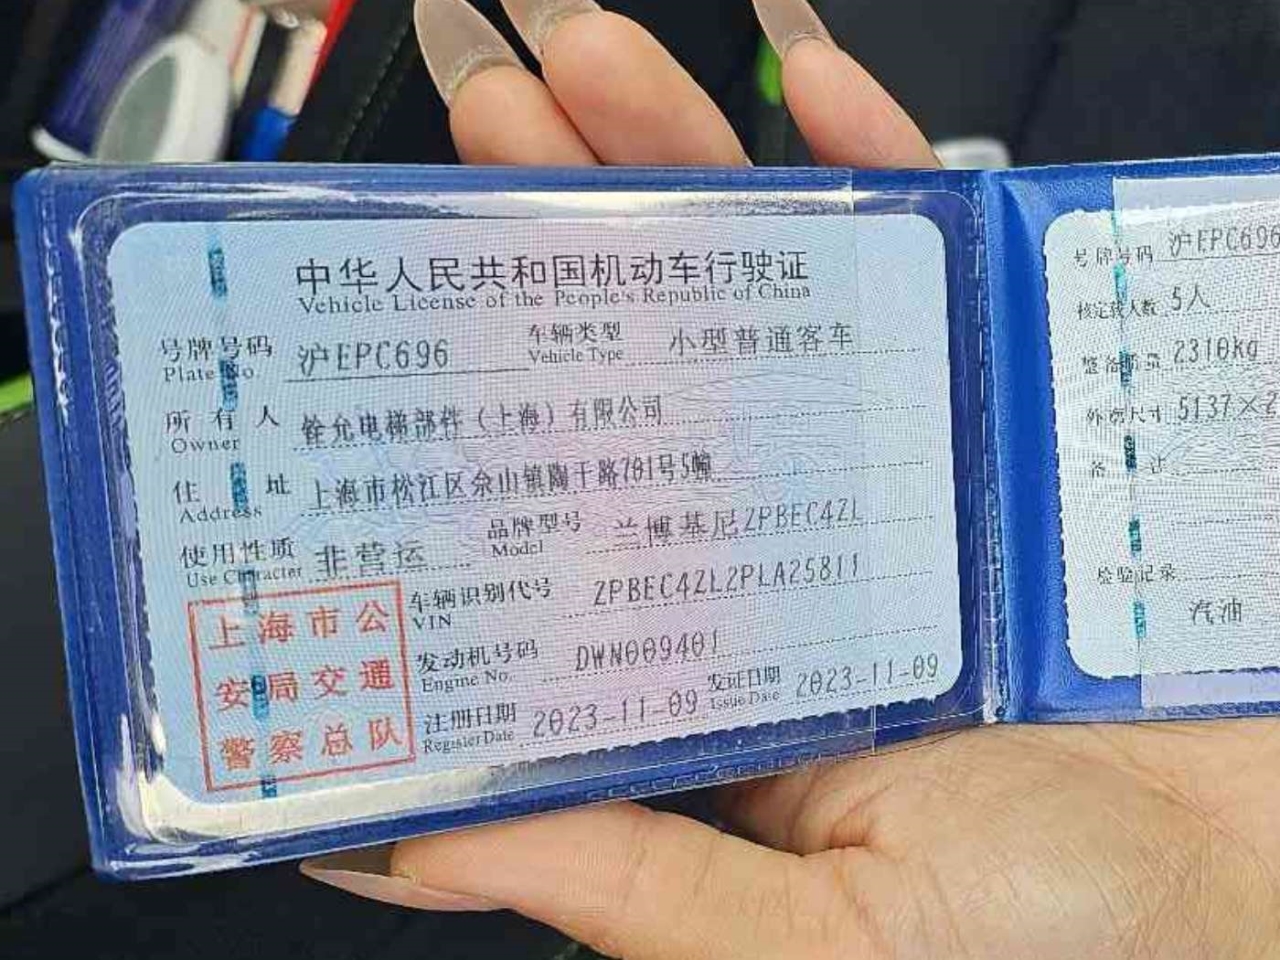 中华人民共和国机动车行驶证
Vehicle License of the People's Republic of China
号牌号码 沪EPC696 车辆类型 小型普通客车
Plate No. Vehicle Type
所有人 铨允电梯部件（上海）有限公司
Owner
住址 上海市松江区佘山镇陶干路701号5幢
Address
使用性质 非营运 品牌型号 兰博基尼ZPBEC4ZL
Use Character Model
车辆识别代号 ZPBEC4ZL2PLA25811
VIN
发动机号码 DWN009401
Engine No.
注册日期 2023-11-09 发证日期 2023-11-09
Register Date Issue Date
上海市公
安局交通
警察总队
号牌号码 沪EPC696
核定载人数 5人
整备质量 2310kg
外廓尺寸 5137×2
备注
检验记录
汽油